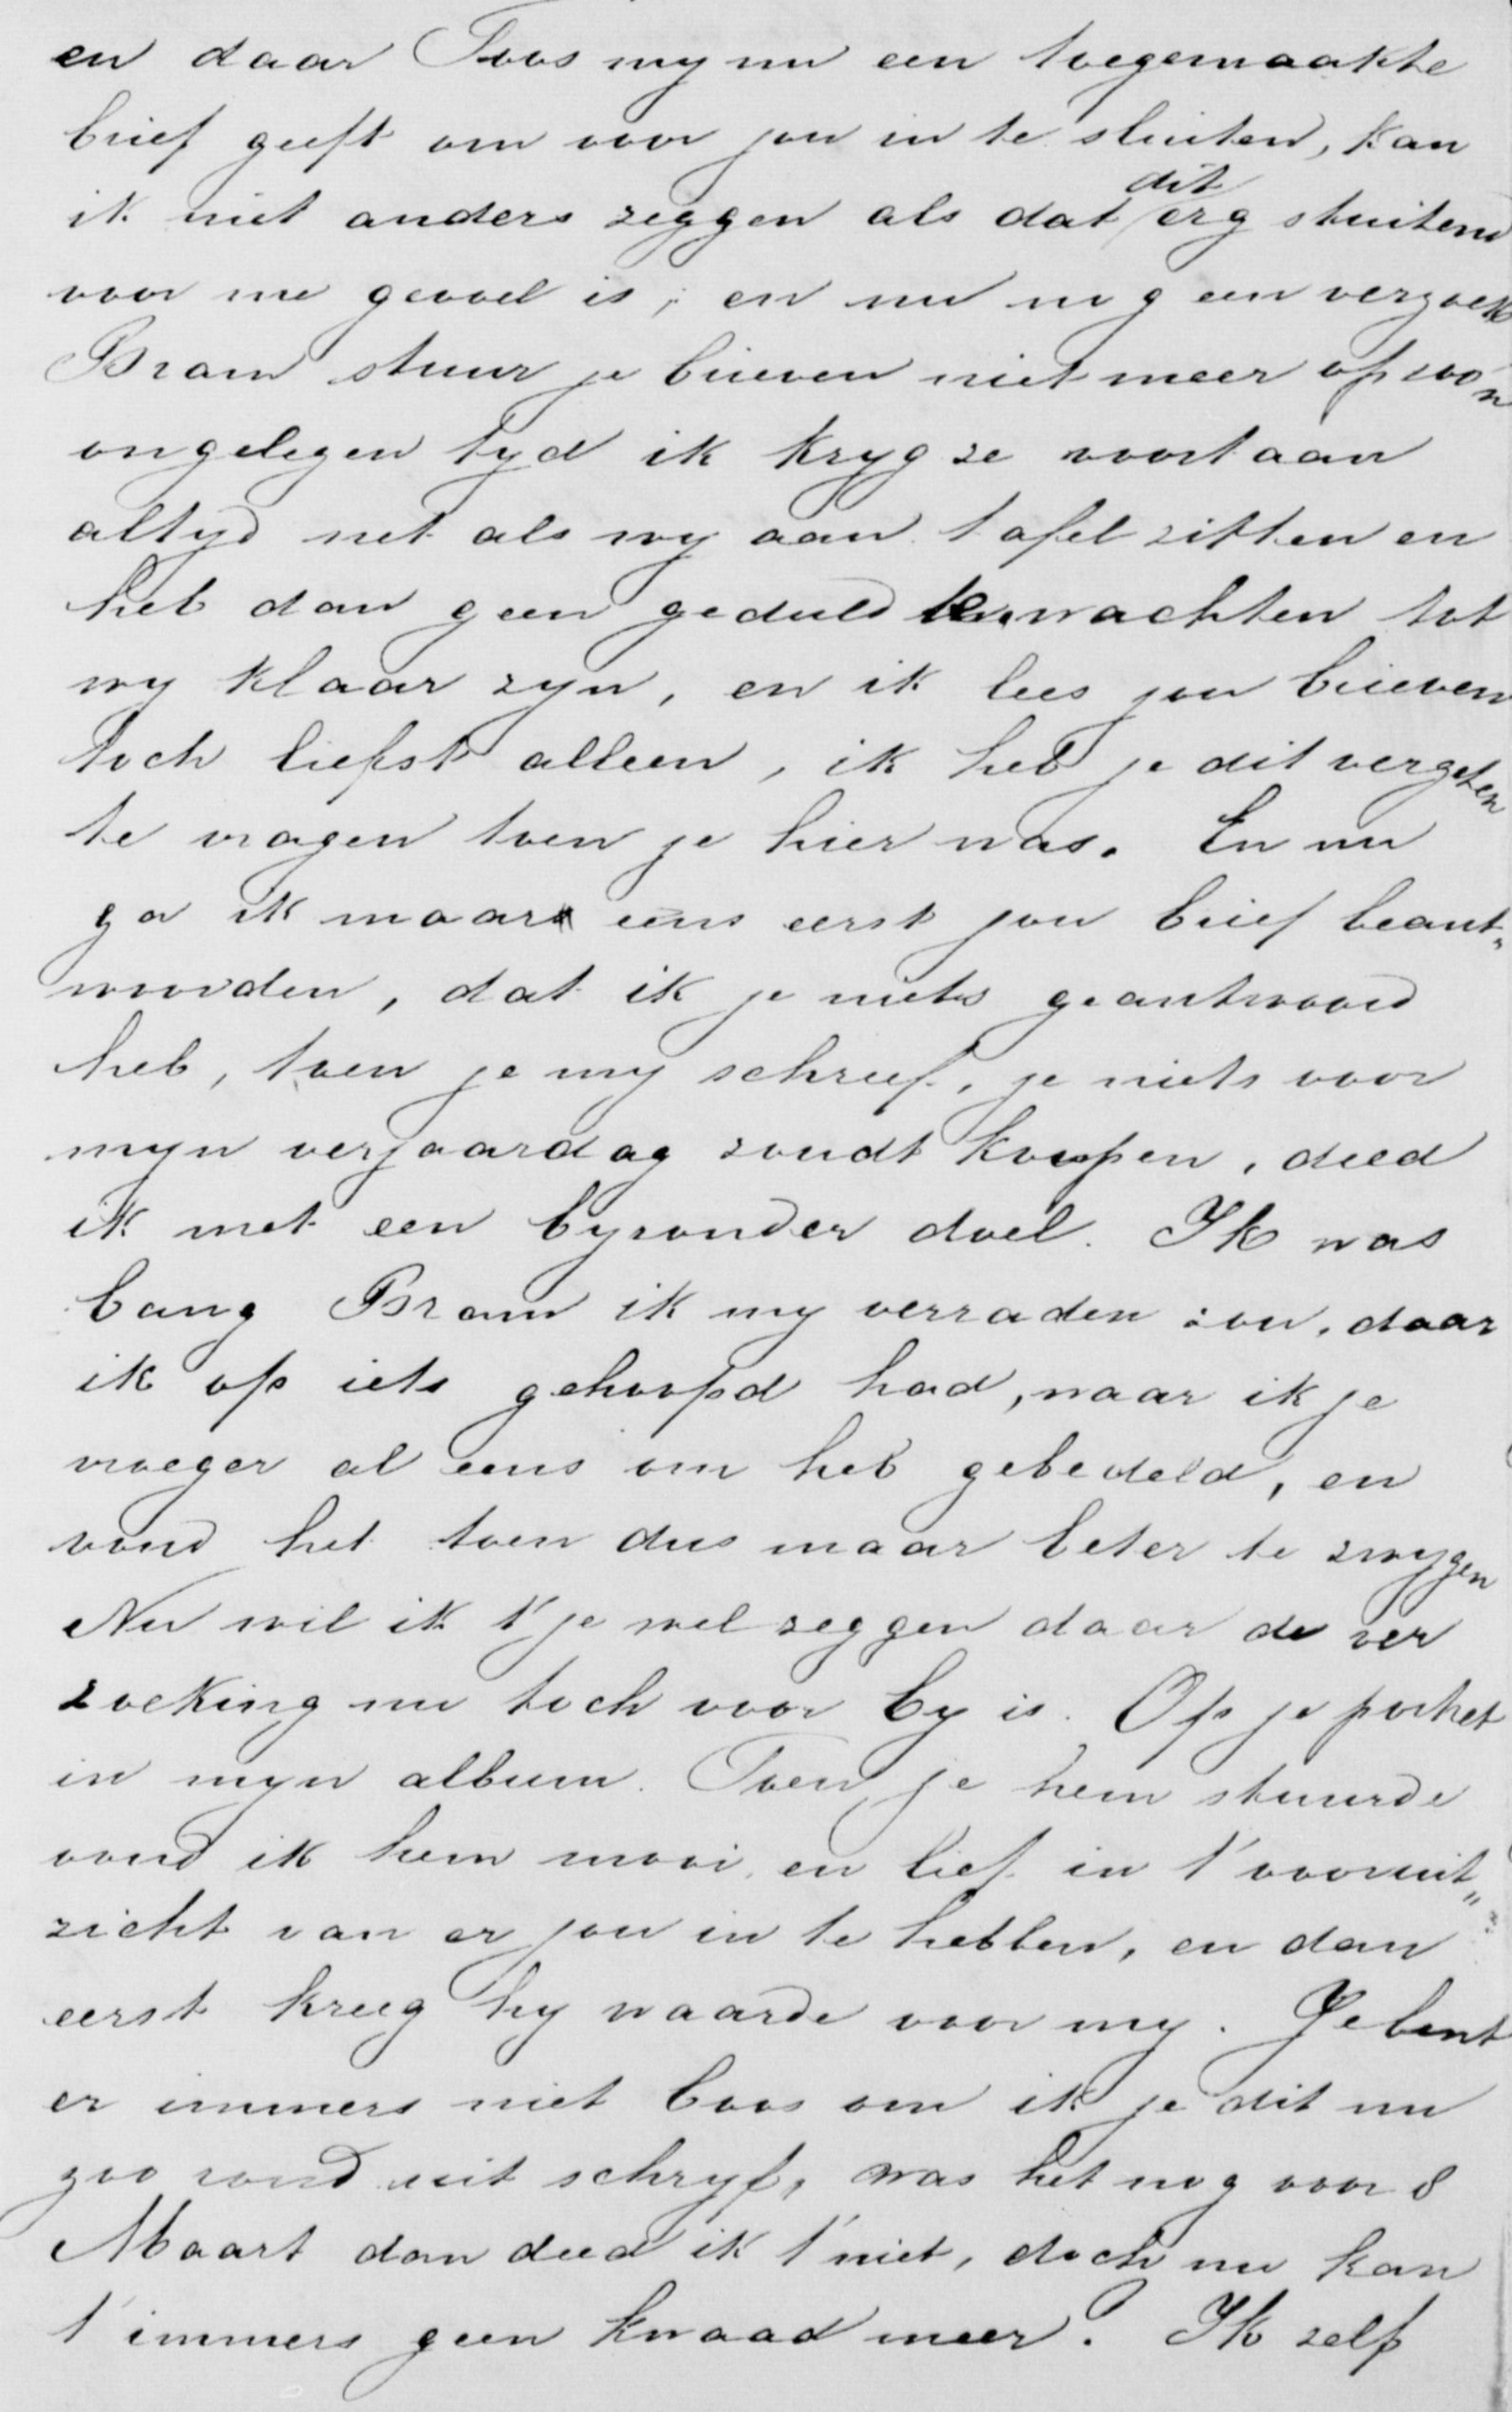 en daar Toos my nu een toegemaakte
brief geeft om voor jou in te sluiten, kan
ik niet anders zeggen als dat dit erg stuitend
voor me gevoel is; en nu nog een verzoek
Bram stuur je brieven niet meer op zoo'n
ongelegen tyd ik kryg ze voortaan
altyd net als wy aan tafel zitten en
heb dan geen geduld te wachten tot
wy klaar zyn, en ik lees jou brieven
toch liefst alleen, ik heb je dit vergeten
te vragen toen je hier was. En nu
ga ik maar eens eerst jou brief beant„
woorden, dat ik je niets geantwoord
heb, toen je my schreef, je niets voor
myn verjaardag zoudt koopen, deed
ik met een byzonder doel. Ik was
bang Bram ik my verraden zou, daar
ik op iets gehoopd had, waar ik je
vroeger al eens om heb gebedeld, en
vond het toen dus maar beter te zwygen
Nu wil ik 't je wel zeggen daar de ver
zoeking nu toch voor by is. Op je portret
in myn album. Toen je hem stuurde
vond ik hem mooi en lief in 't vooruit„
zicht van er jou in te hebben, en dan
eerst kreeg hy waarde voor my. Je bent
er immers niet boos om ik je dit nu
zoo rond uit schryf, was het nog voor 8
Maart dan deed ik 't niet, doch nu kan
't immers geen kwaad meer? Ik zelf